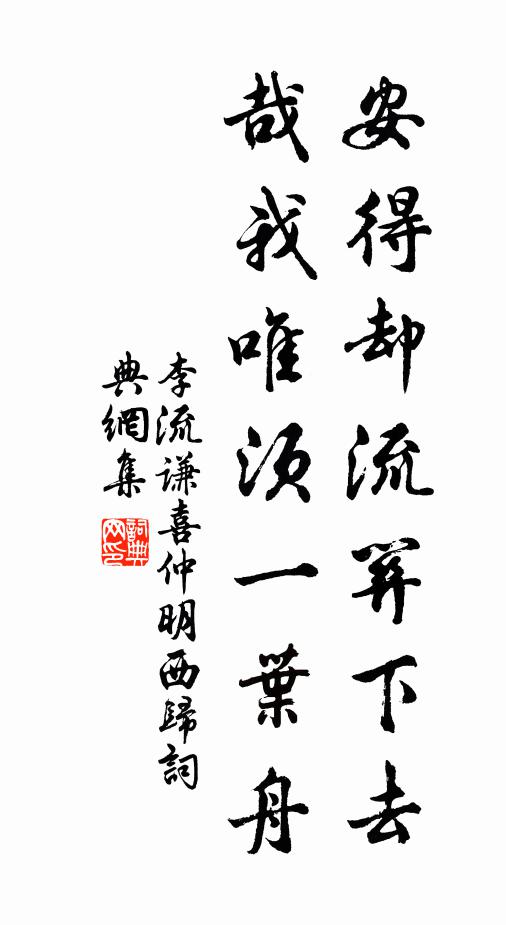 安得却流下去
哉我唯須一葉舟
李流謙喜仲明西歸詞
典網集
詞典
网印